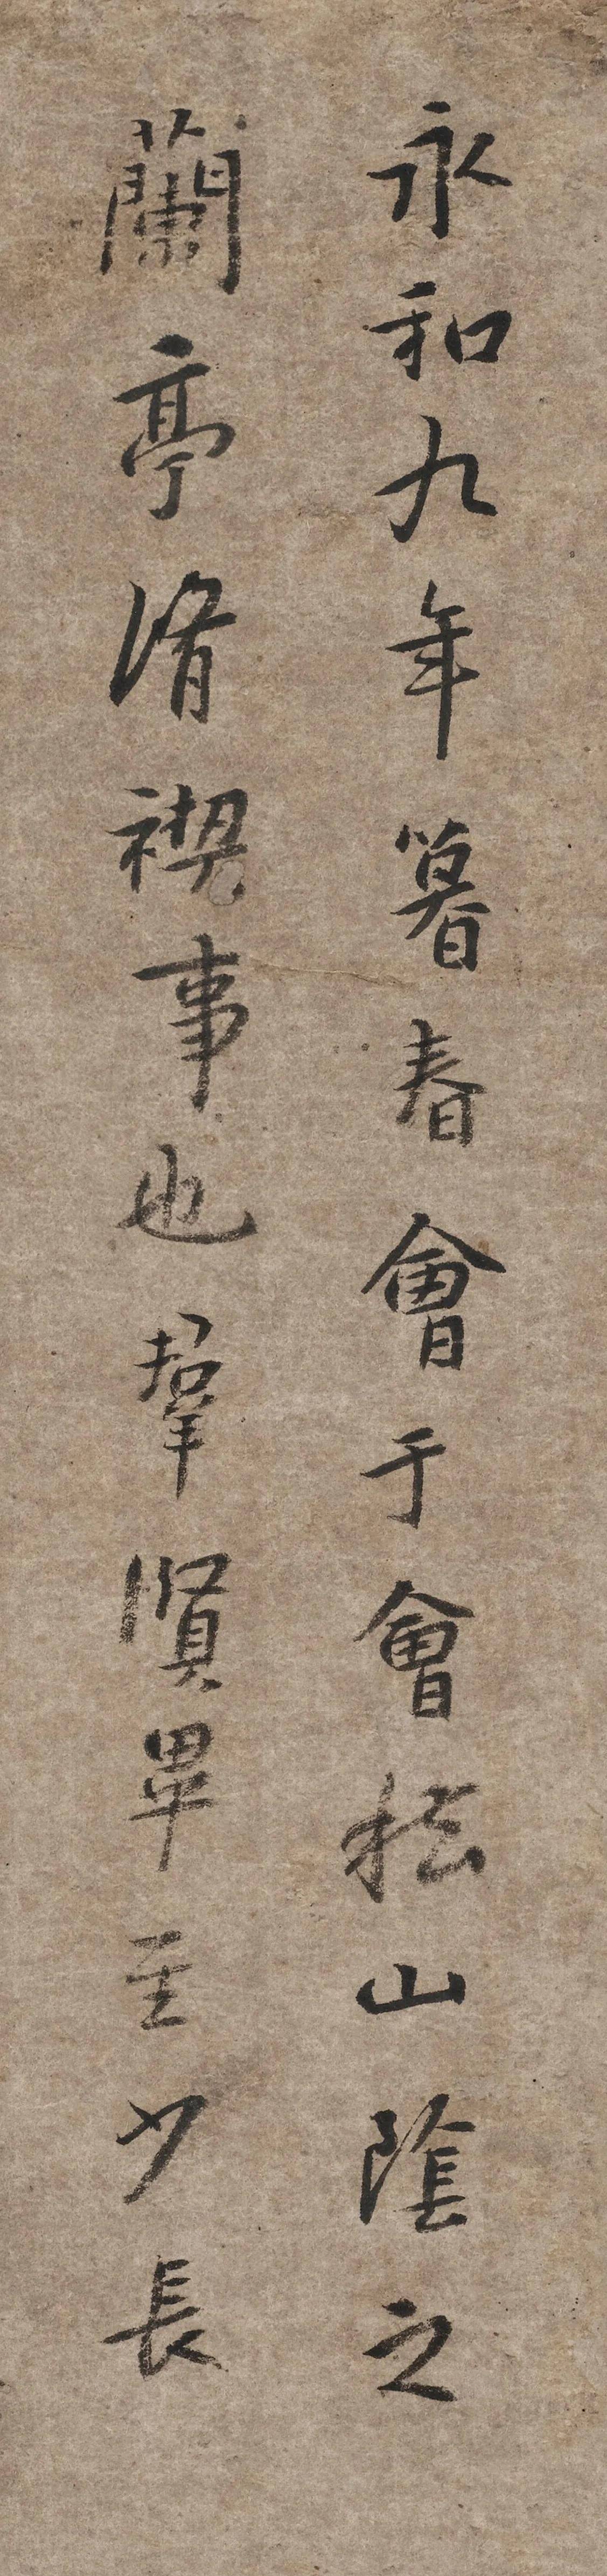 永和九年暮春會于會稽山陰之
蘭亭脩禊事也羣賢畢至少長